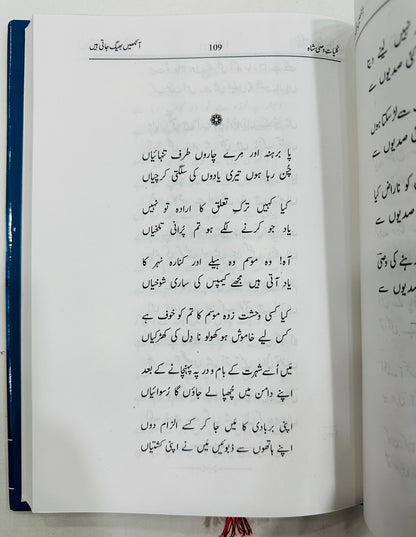 آنکھیں بھیگ جاتی ہیں
109
کلیاتِ وصی شاہ
پا برہنہ اور مرے چاروں طرف تنہائیاں
چُن رہا ہوں تیری یادوں کی سلگتی کرچیاں
کیا کہیں ترکِ تعلق کا ارادہ تو نہیں
یاد جو کرنے لگے ہو تم پُرانی تلخیاں
آہ! وہ موسم وہ بیلے اور کنارہ نہر کا
یاد آتی ہیں مجھے کیمپس کی ساری شوخیاں
کیا کسی وحشت زدہ موسم کا تم کو خوف ہے
کس لیے خاموش ہو کھولو نا دِل کی کھڑکیاں
مَیں اُسے شہرت کے بام و در پہ پہنچانے کے بعد
اپنے دامن میں چُھپا لے جاؤں گا رُسوائیاں
اپنی بربادی کا مَیں جا کر کسے الزام دوں
اپنے ہاتھوں سے ڈبوئیں مَیں نے اپنی کشتیاں
نہیں لیتے دیتا
کی صدیوں سے
سے لڑ سکتا ہوں
صدیوں سے
کو ناراض کیا
صدیوں سے
رہنے کی وصی
صدیوں سے